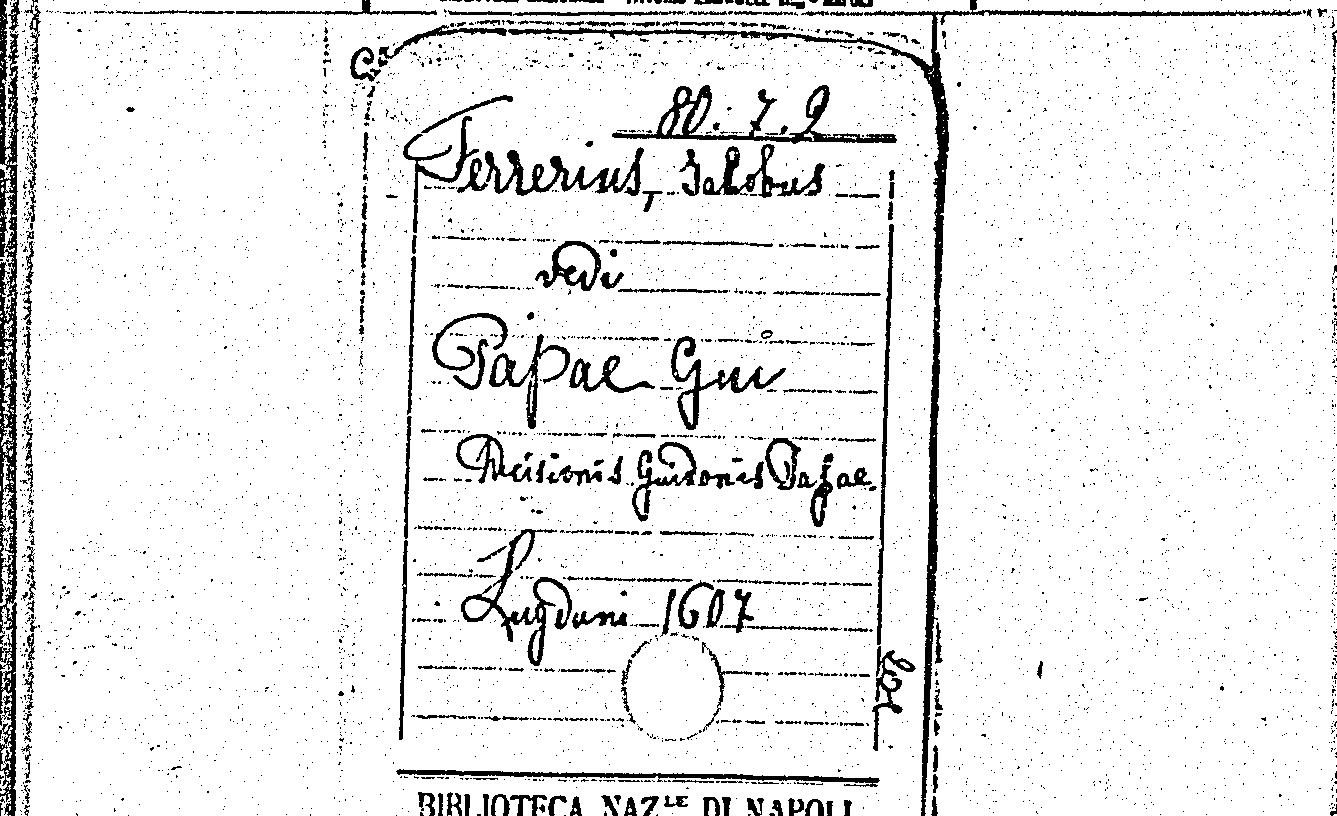 80. 7. 9
Ferrerius, Jakobus
vedi
Papae Gui
Decisionis Guidonis Papae.
Lugduni 1607
BIBLIOTECA NAZLE DI NAPOLI